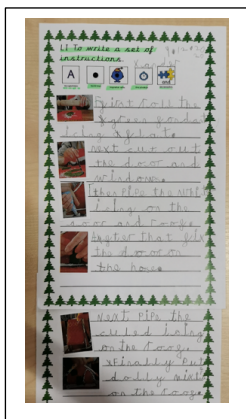 LI To write a set of
instructions.
A
First roll the
green fonden
icing flat.
next cut out
the door and
window.
then pipe the white
icing on the
door and roofe.
after that fix
the door on
the house.
Next pipe the
icing
on the roof.
Finally put
dolly mixt
on the roof.